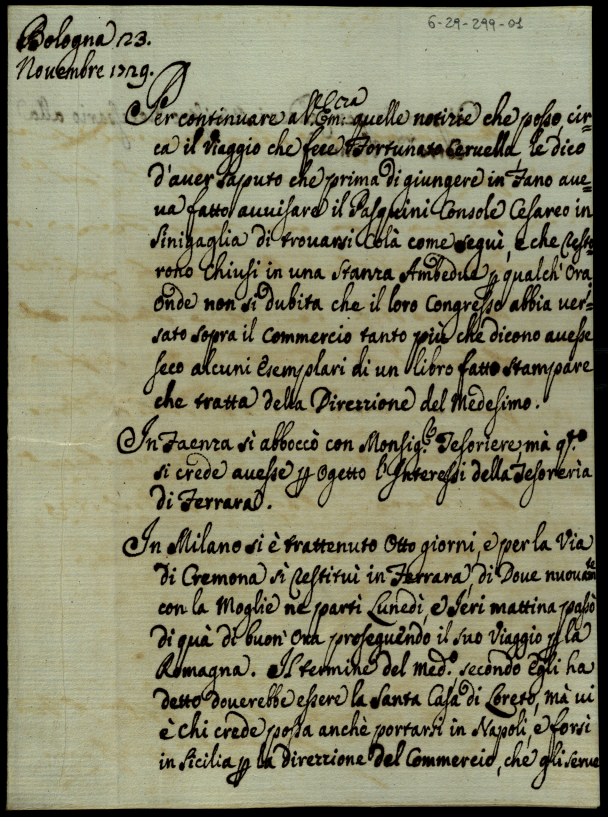 6-29-299-01
Bologna 23.
Novembre 1729.
Per continuare a V. Em:za quelle notizie che posso, cir=
ca il Viaggio che fece Fortunato Cervella, le dico
d'aver saputo che prima di giungere in Fano ave=
va fatto avvisare il Pasquini Console Cesareo in
Sinigaglia di trovarsi Colà come seguì, e che Resto
rono Chiusi in una Stanza Ambedue p qualch' Ora
onde non si dubita che il loro Congresso abbia ver=
sato sopra il Commercio tanto più che dicono avesse
seco alcuni Esemplari di un libro fatto Stampare
che tratta della Direzzione del Medesimo.
In Faenza si abboccò con Monsig.r Tesoriere, mà q.to
si crede avesse p Ogetto l'Interessi della Tesoreria
di Ferrara.
In Milano si è trattenuto Otto giorni, e per la Via
di Cremona si Restituì in Ferrara, di Dove nuovam.te
con la Moglie ne partì Lunedì, e Ieri mattina passò
di quà di buon' Ora proseguendo il suo Viaggio p la
Romagna. Il termine del med.o secondo Egli ha
detto dovrebbe essere la Santa Casa di Loreto, mà vi
è chi crede possa anchè portarsi in Napoli, e forsi
in Sicilia p la direzzione del Commercio, che gli serve